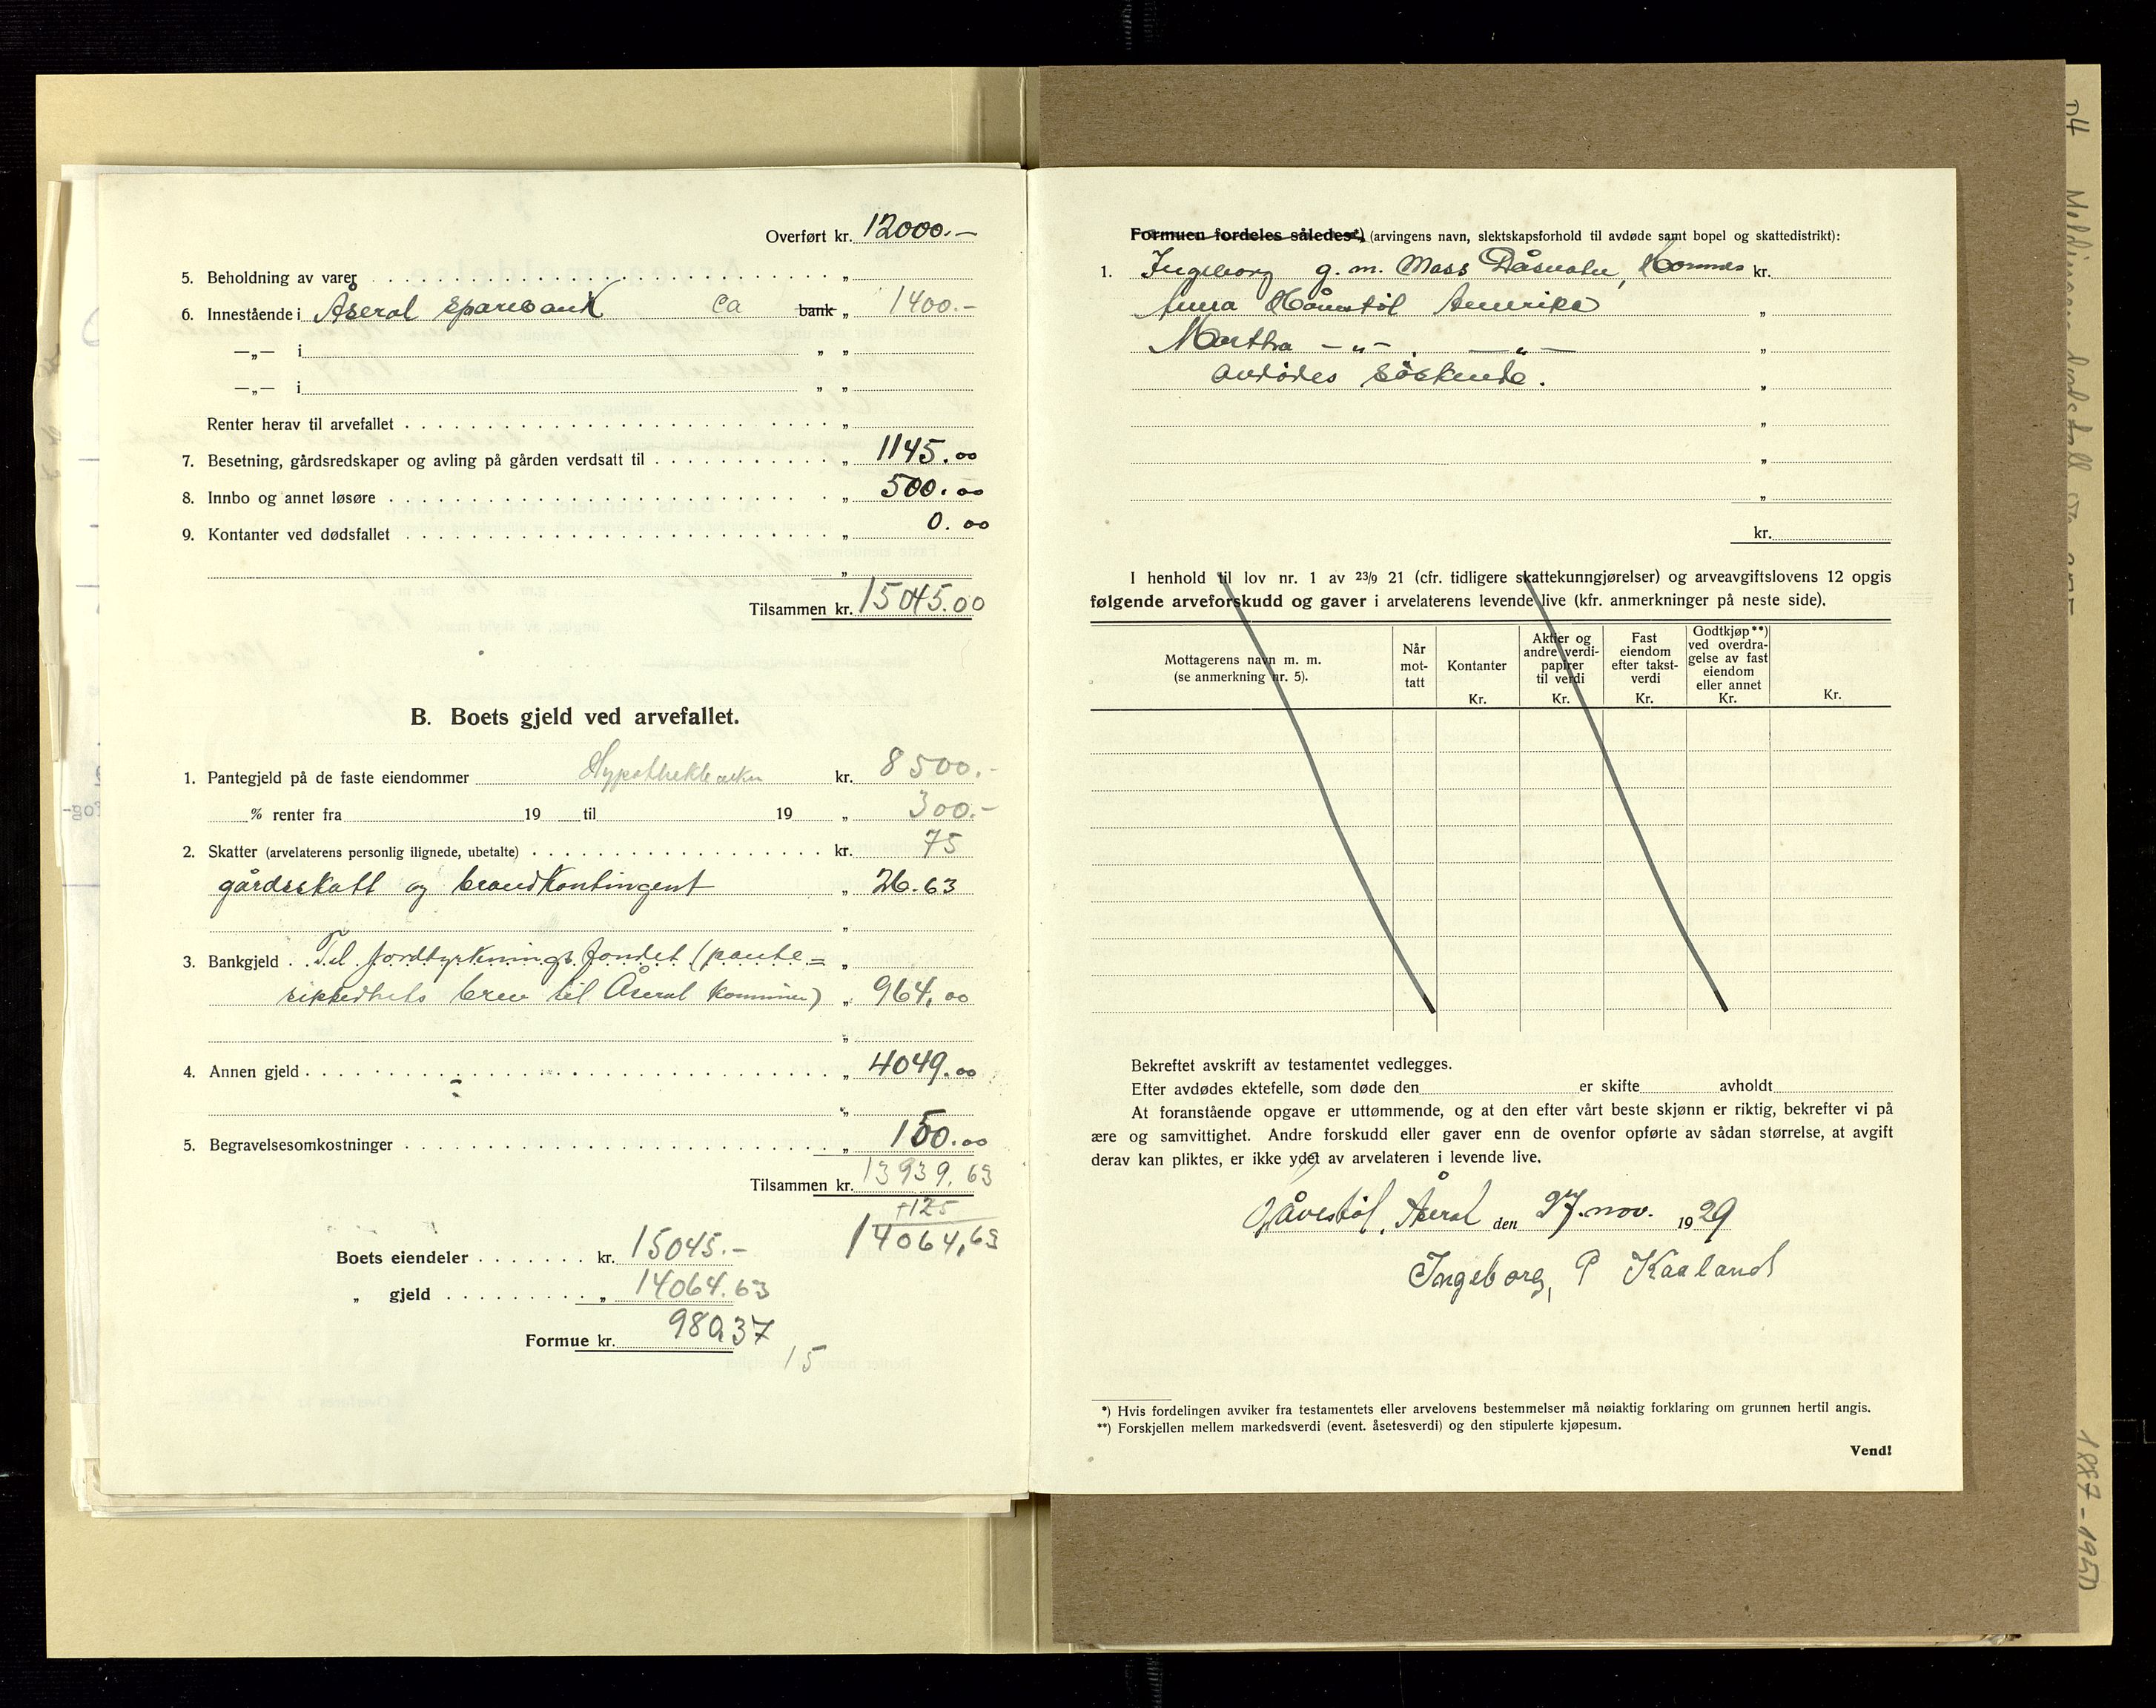 Overført kr. 12000.—
5. Beholdning av varer „
6. Innestående i Åseral sparebank ca bank „ 1400.—
—„— i „ „
—„— i „ „
Renter herav til arvefallet „
7. Besetning, gårdsredskaper og avling på gården verdsatt til „ 1145.00
8. Innbo og annet løsøre „ 500.00
9. Kontanter ved dødsfallet „ 0.00
„
Tilsammen kr. 15045.00
B. Boets gjeld ved arvefallet.
1. Pantegjeld på de faste eiendommer Hypothekbanken kr. 8500.-
% renter fra 19 til 19 „ 300.-
2. Skatter (arvelaterens personlig ilignede, ubetalte) kr. 75
gårdsskatt og brandkontingent „ 26.63
„
3. Bankgjeld Til jorddyrkningsfondet (pante= „
sikkerhets brev til Åseral kommune) „ 964.00
„
4. Annen gjeld „ 4049.00
„
5. Begravelsesomkostninger „ 150.00
Tilsammen kr. 13939.63
+125
14064,63
Boets eiendeler kr. 15045.—
„ gjeld „ 14064.63
Formue kr. 980,37
15
Formuen fordeles således*) (arvingens navn, slektskapsforhold til avdøde samt bopel og skattedistrikt):
1. Ingeborg g. m. Mass kr.
Anna Håvestøl Amerika „
Martha —„— —„— „
avdødes søskende. „
„
„
„
kr.
I henhold til lov nr. 1 av 23/9 21 (cfr. tidligere skattekunngjørelser) og arveavgiftslovens 12 opgis
følgende arveforskudd og gaver i arvelaterens levende live (kfr. anmerkninger på neste side).
Mottagerens navn m. m.
(se anmerkning nr. 5).
Når
mot-
tatt
Kontanter
Kr.
Aktier og
andre verdi-
papirer
til verdi
Kr.
Fast
eiendom
efter takst-
verdi
Kr.
Godtkjøp**)
ved overdra-
gelse av fast
eiendom
eller annet
Kr.
Kr.
Bekreftet avskrift av testamentet vedlegges.
Efter avdødes ektefelle, som døde den er skifte avholdt
At foranstående opgave er uttømmende, og at den efter vårt beste skjønn er riktig, bekrefter vi på
ære og samvittighet. Andre forskudd eller gaver enn de ovenfor opførte av sådan størrelse, at avgift
derav kan pliktes, er ikke ydet av arvelateren i levende live.
Håvestøl, Åseral den 27. nov. 1929
Ingeborg P Kaaland
*) Hvis fordelingen avviker fra testamentets eller arvelovens bestemmelser må nøiaktig forklaring om grunnen hertil angis.
**) Forskjellen mellem markedsverdi (event. åsetesverdi) og den stipulerte kjøpesum.
Vend!
D4
1857-1950